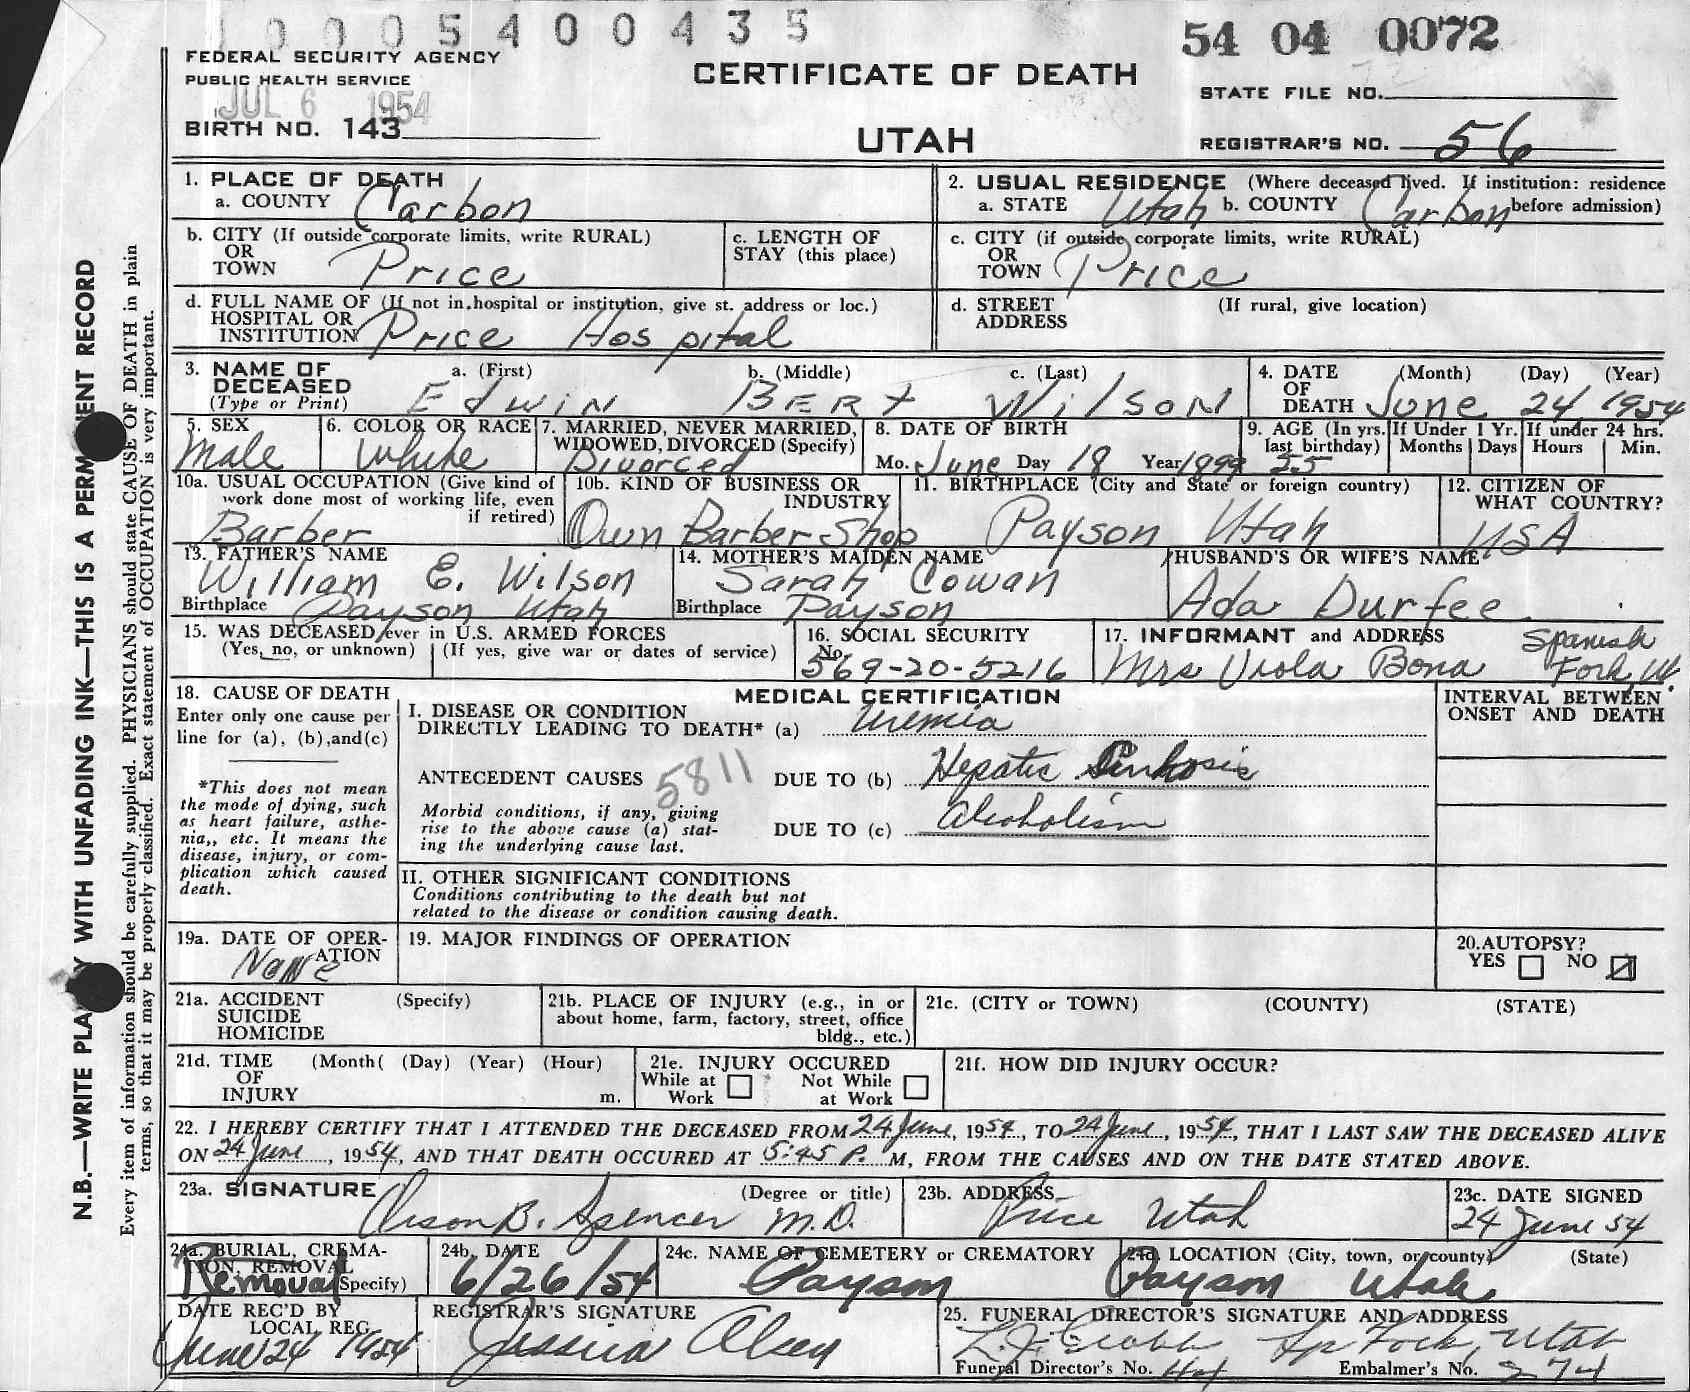 1 0 0 0 5 4 0 0 4 3 5
54 04 0072
FEDERAL SECURITY AGENCY
PUBLIC HEALTH SERVICE
JUL 6 1954
CERTIFICATE OF DEATH
STATE FILE NO.
BIRTH NO. 143
UTAH
REGISTRAR'S NO. 56
1. PLACE OF DEATH
a. COUNTY Carbon
2. USUAL RESIDENCE (Where deceased lived. If institution: residence
a. STATE Utah b. COUNTY Carbon before admission)
b. CITY (If outside corporate limits, write RURAL)
OR
TOWN Price
c. LENGTH OF
STAY (this place)
c. CITY (if outside corporate limits, write RURAL)
OR
TOWN Price
d. FULL NAME OF (If not in hospital or institution, give st. address or loc.)
HOSPITAL OR
INSTITUTION Price Hospital
d. STREET (If rural, give location)
ADDRESS
3. NAME OF a. (First) b. (Middle) c. (Last)
DECEASED
(Type or Print) Edwin Bert Wilson
4. DATE (Month) (Day) (Year)
OF
DEATH June 24 1954
5. SEX
Male
6. COLOR OR RACE
White
7. MARRIED, NEVER MARRIED,
WIDOWED, DIVORCED (Specify)
Divorced
8. DATE OF BIRTH
Mo. June Day 18 Year 1899
9. AGE (In yrs. last birthday) 55
If Under 1 Yr.
Months Days
If under 24 hrs.
Hours Min.
10a. USUAL OCCUPATION (Give kind of
work done most of working life, even
if retired)
Barber
10b. KIND OF BUSINESS OR
INDUSTRY
Own Barber Shop
11. BIRTHPLACE (City and State or foreign country)
Payson Utah
12. CITIZEN OF
WHAT COUNTRY?
USA
13. FATHER'S NAME
William E. Wilson
Birthplace Payson Utah
14. MOTHER'S MAIDEN NAME
Sarah Cowan
Birthplace Payson
HUSBAND'S OR WIFE'S NAME
Ada Durfee
15. WAS DECEASED ever in U.S. ARMED FORCES
(Yes, no, or unknown) (If yes, give war or dates of service)
16. SOCIAL SECURITY
No.
569-20-5216
17. INFORMANT and ADDRESS
Mrs Viola Bona Spanish
Fork, Ut.
18. CAUSE OF DEATH
Enter only one cause per
line for (a), (b), and (c)
*This does not mean
the mode of dying, such
as heart failure, asthe-
nia,, etc. It means the
disease, injury, or com-
plication which caused
death.
MEDICAL CERTIFICATION
I. DISEASE OR CONDITION
DIRECTLY LEADING TO DEATH* (a) Uremia
ANTECEDENT CAUSES 5811 DUE TO (b) Hepatic Cirrhosis
Morbid conditions, if any, giving
rise to the above cause (a) stat-
ing the underlying cause last.
DUE TO (c) Alcoholism
INTERVAL BETWEEN
ONSET AND DEATH
II. OTHER SIGNIFICANT CONDITIONS
Conditions contributing to the death but not
related to the disease or condition causing death.
19a. DATE OF OPER-
ATION
None
19. MAJOR FINDINGS OF OPERATION
20. AUTOPSY?
YES NO
21a. ACCIDENT (Specify)
SUICIDE
HOMICIDE
21b. PLACE OF INJURY (e.g., in or
about home, farm, factory, street, office
bldg., etc.)
21c. (CITY or TOWN) (COUNTY) (STATE)
21d. TIME (Month( (Day) (Year) (Hour)
OF
INJURY m.
21e. INJURY OCCURED
While at Work Not While at Work
21f. HOW DID INJURY OCCUR?
22. I HEREBY CERTIFY THAT I ATTENDED THE DECEASED FROM 24 June, 1954, TO 24 June, 1954, THAT I LAST SAW THE DECEASED ALIVE
ON 24 June, 1954, AND THAT DEATH OCCURED AT 5:45 P. M, FROM THE CAUSES AND ON THE DATE STATED ABOVE.
23a. SIGNATURE (Degree or title)
Orson B. Spencer M.D.
23b. ADDRESS
Price Utah
23c. DATE SIGNED
24 June 54
24a. BURIAL, CREMA-
TION, REMOVAL
Removal (Specify)
24b. DATE
6/26/54
24c. NAME OF CEMETERY or CREMATORY
Payson
24d. LOCATION (City, town, or county) (State)
Payson Utah
DATE REC'D BY
LOCAL REG.
June 24 1954
REGISTRAR'S SIGNATURE
Jessica Olsen
25. FUNERAL DIRECTOR'S SIGNATURE AND ADDRESS
Sp Fork, Utah
Funeral Director's No. 44 Embalmer's No. 274
N.B.—WRITE PLAINLY WITH UNFADING INK—THIS IS A PERMANENT RECORD
Every item of information should be carefully supplied. PHYSICIANS should state CAUSE OF DEATH in plain
terms, so that it may be properly classified. Exact statement of OCCUPATION is very important.